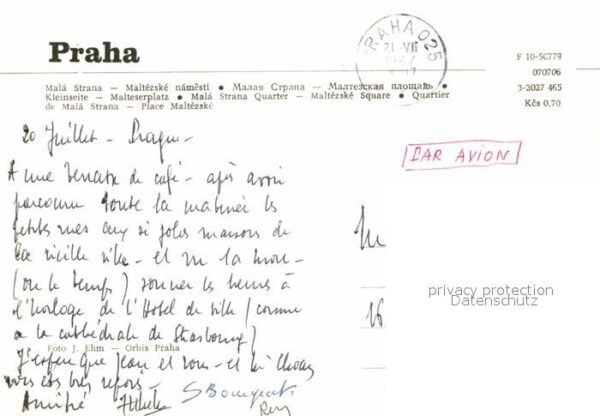 Praha
PRAHA 025
21.-VII
1987
F 10-50779
070706
3-2027 465
Kčs 0,70
Malá Strana — Maltézské náměstí • Малая Страна — Малтезская площадь •
Kleinseite — Malteserplatz • Malá Strana Quarter — Maltézské Square • Quartier
de Malá Strana — Place Maltézské
PAR AVION
20 Juillet - Prague -
A une terrasse de café - après avoir
parcouru toute la matinée les
petites rues aux si jolies maisons de
la vieille ville - et vu la mort -
(ou le temps) sonner les heures à
l'horloge de l'Hotel de ville (comme
a la cathédrale de Strasbourg)
Foto J. Ehm — Orbis Praha
J'espère que Jean et vous - et
vous êtes très
Amitié
privacy protection
Datenschutz